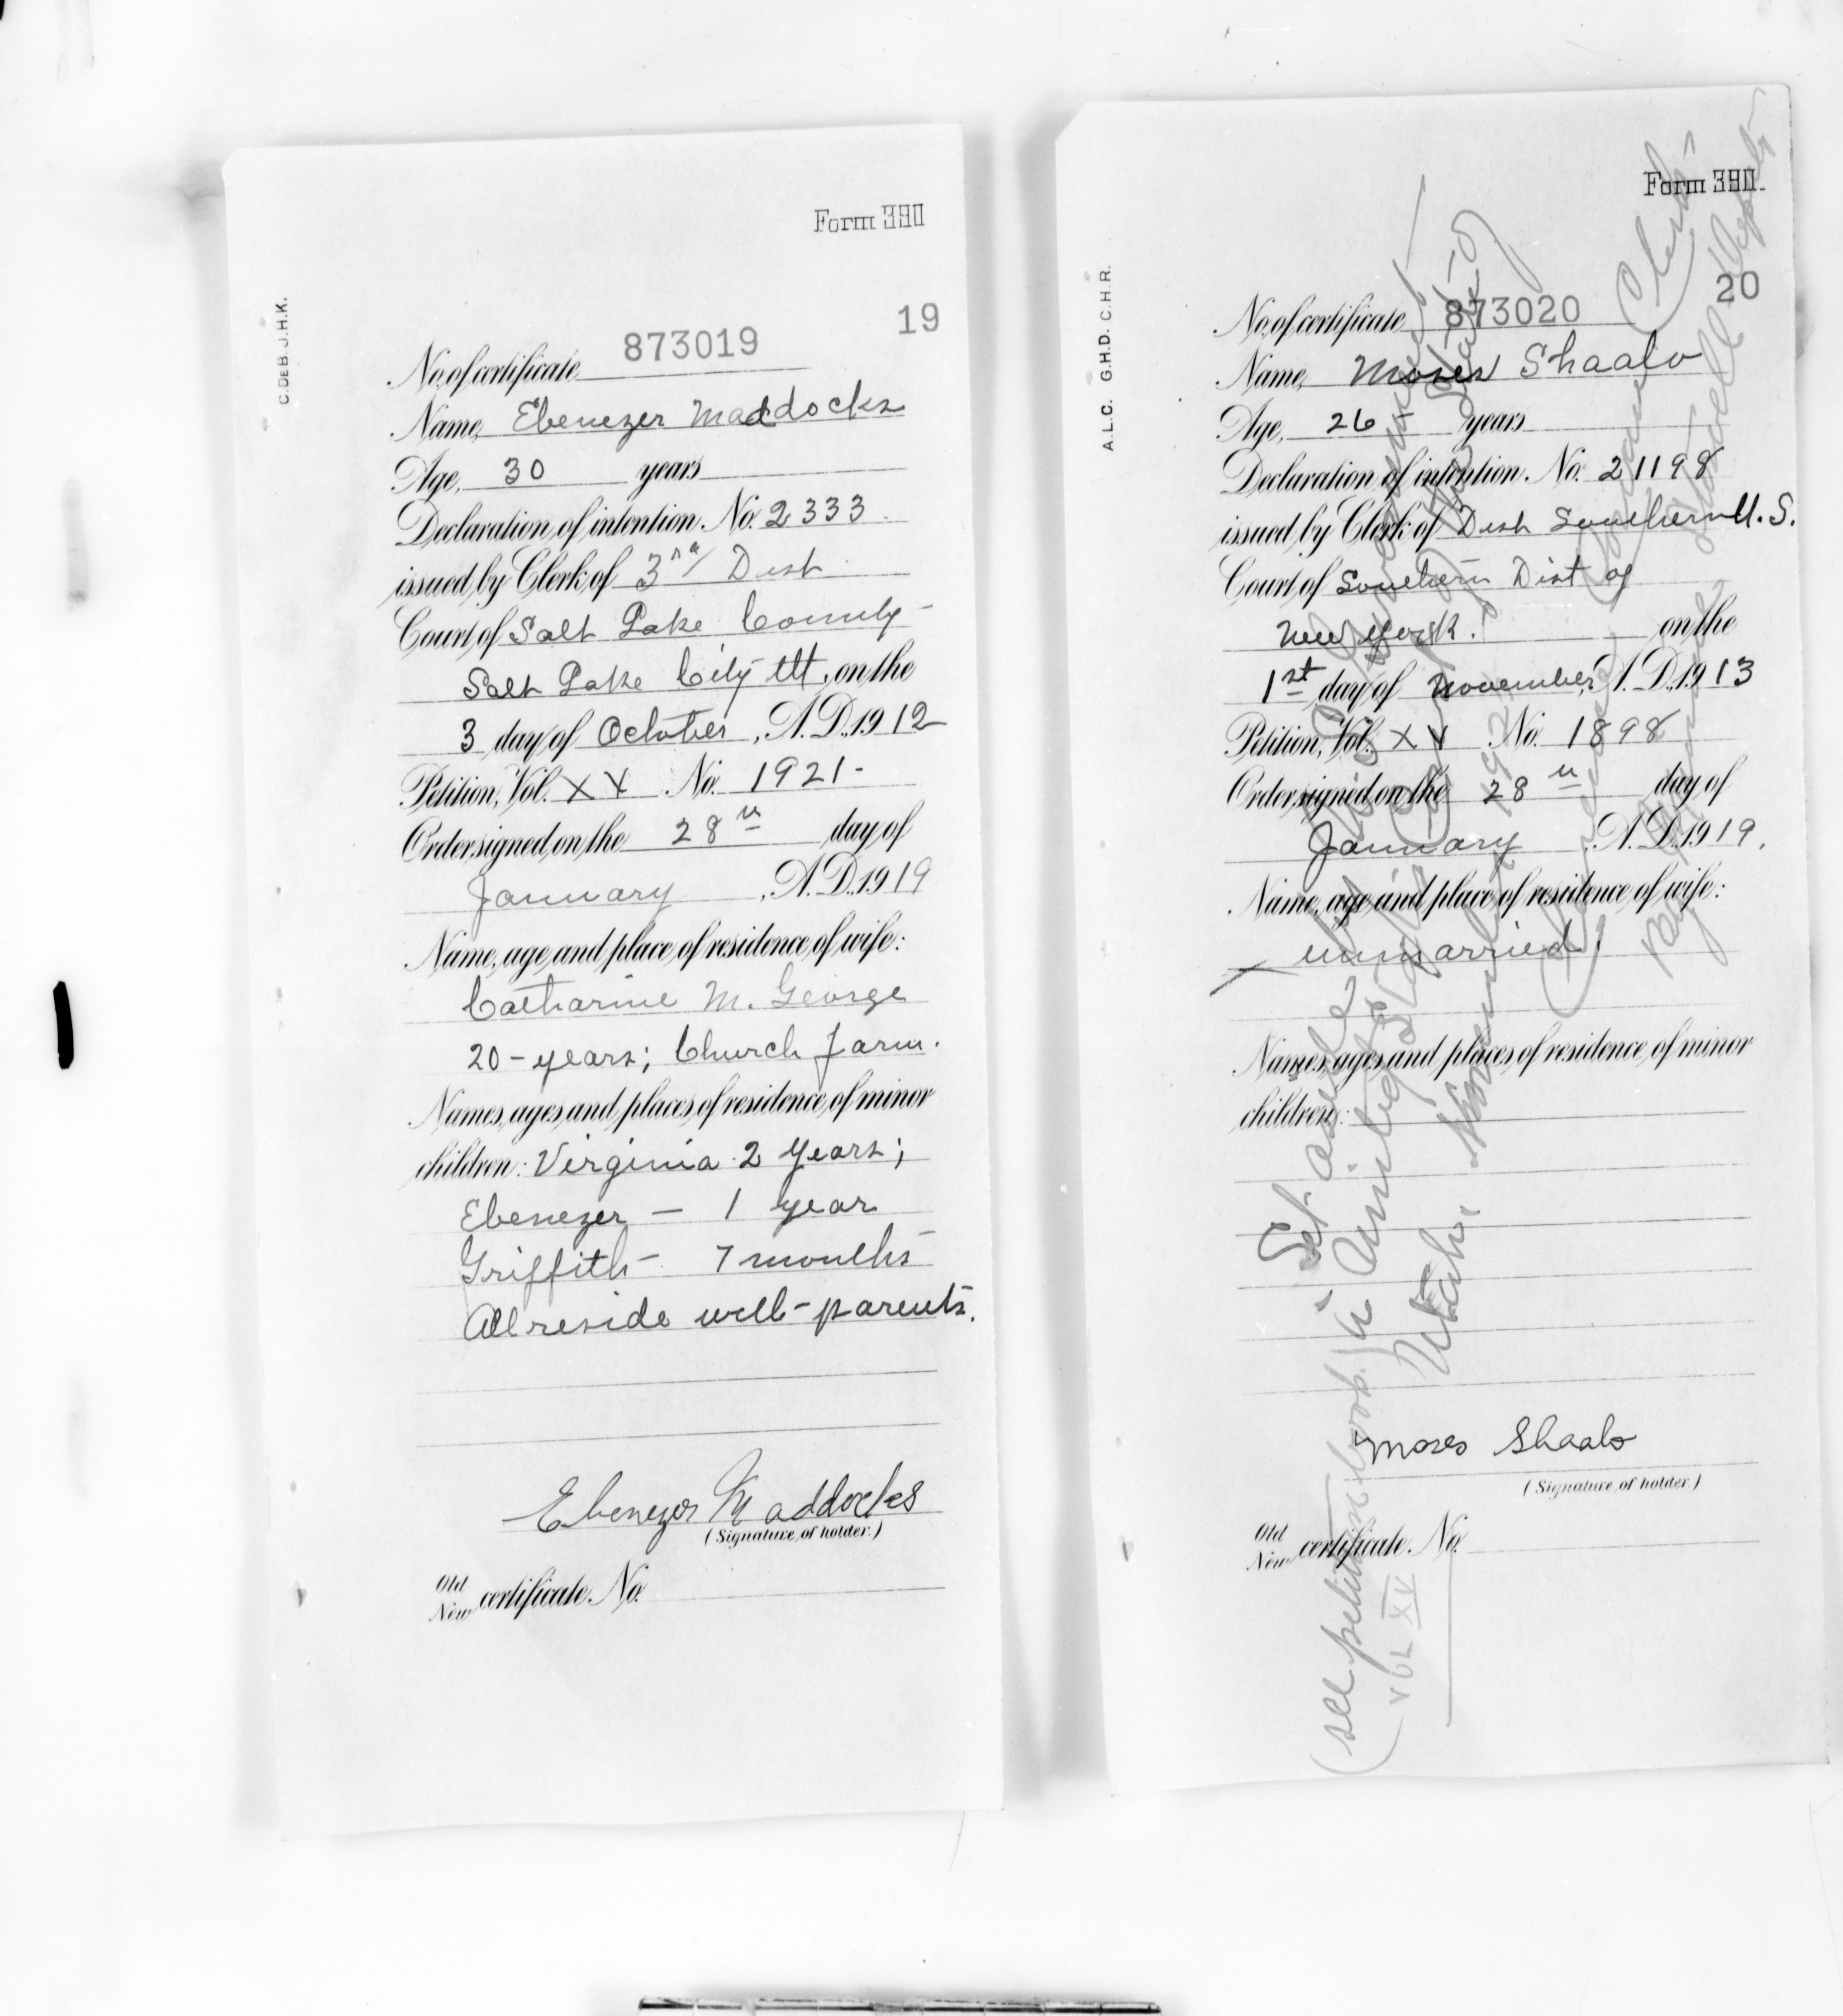 Form 390
19
C. DE B. J.H.K.
No. of certificate 873019
Name, Ebenezer Maddocks
Age, 30 years
Declaration of intention. No. 2333
issued by Clerk of 3rd Dist
Court of Salt Lake County
Salt Lake City Ut, on the
3 day of October, A.D. 1912
Petition, Vol. XX No. 1921-
Order signed on the 28th day of
January, A.D. 1919
Name, age and place of residence of wife:
Catharine M. George
20-years; Church farm.
Names, ages and places of residence of minor
children: Virginia 2 years;
Ebenezer - 1 year
Griffith - 7 months
All reside with parents.
Ebenezer Maddocks
(Signature of holder.)
Old
New certificate No.
Form 390
20
A.L.C. G.H.D. C.H.R.
No. of certificate 873020
Name, Moses Shaalo
Age, 26 years
Declaration of intention. No. 21198
issued by Clerk of Dist Southern U.S.
Court of Southern Dist of
New York. on the
1st day of November, A.D. 1913
Petition, Vol. XV No. 1898
Order signed on the 28th day of
January A.D. 1919.
Name, age and place of residence of wife:
unmarried
Names, ages and places of residence of minor
children:
Moses Shaalo
(Signature of holder.)
Old
New certificate No.
Set aside
Utah,
(see petition book
VOL XV